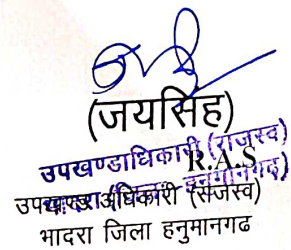 (जयसिंह)
उपखण्डाधिकारी (राजस्व)
R.A.S
उपखण्ड अधिकारी (राजस्व)
भादरा जिला हनुमानगढ